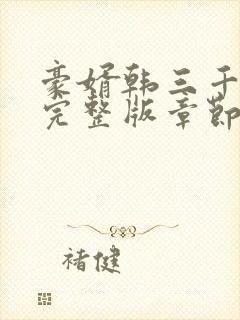 豪婿韩三千
完整版章节
褚健